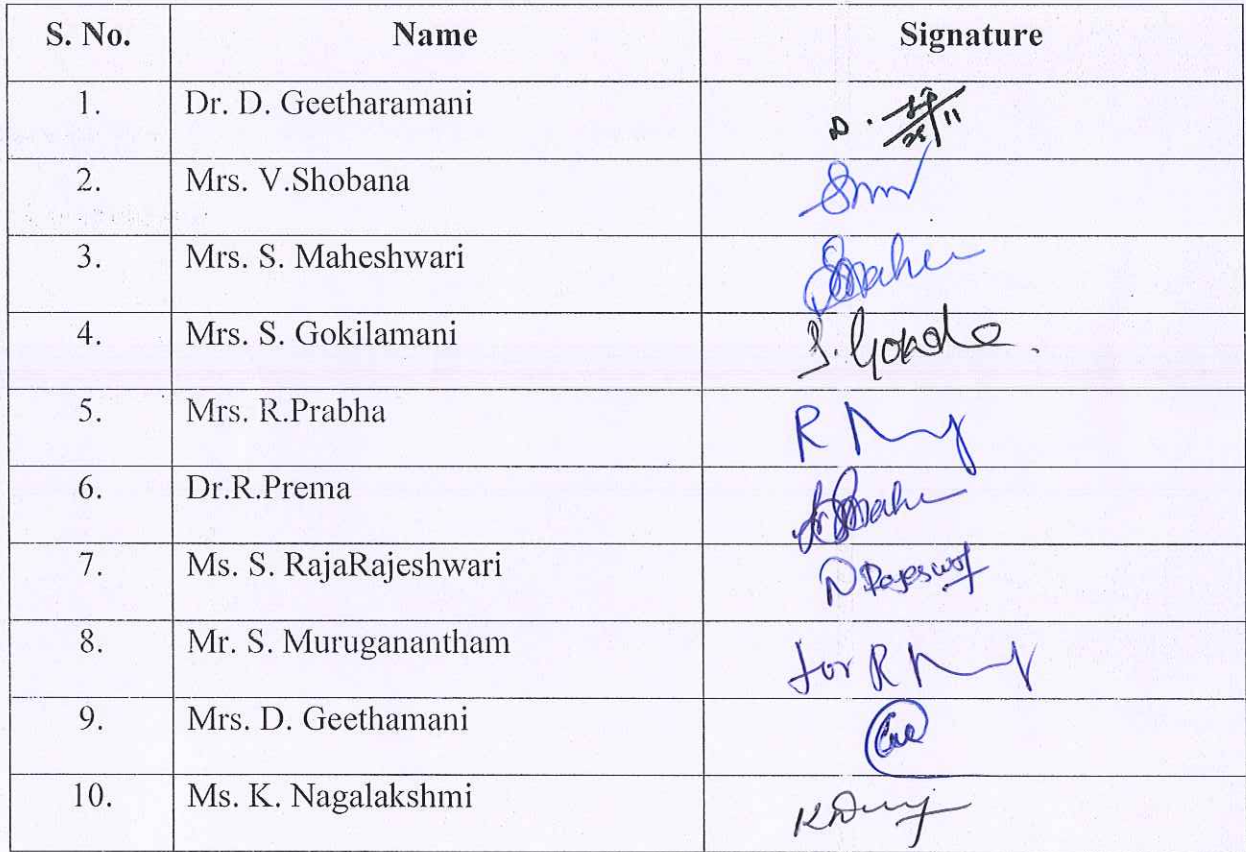 S. No. Name Signature
1. Dr. D. Geetharamani
2. Mrs. V.Shobana
3. Mrs. S. Maheshwari
4. Mrs. S. Gokilamani
5. Mrs. R.Prabha R
6. Dr.R.Prema
7. Ms. S. RajaRajeshwari
8. Mr. S. Muruganantham for R
9. Mrs. D. Geethamani
10. Ms. K. Nagalakshmi